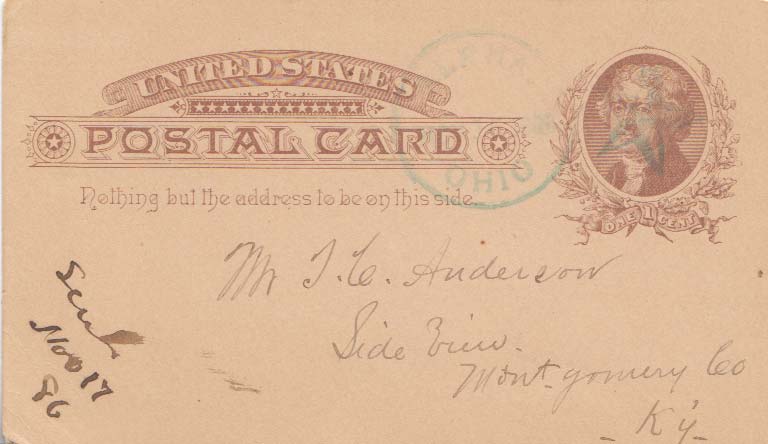 UNITED STATES
POSTAL CARD
Nothing but the address to be on this side.
ALPHA
OHIO
ONE 1 CENT
Mr T. C. Anderson
Side View.
Mont-gomery Co
Ky
Sent
Nov 17
86